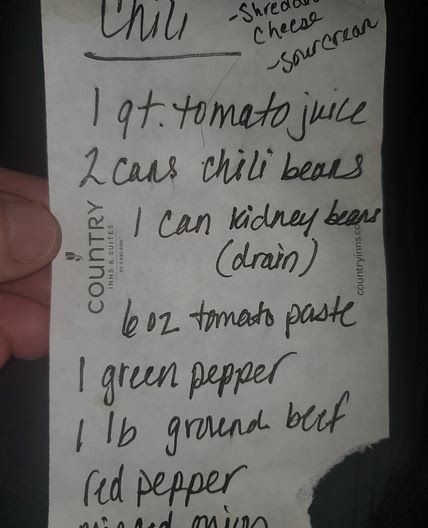 Chili
-Shredded
Cheese
-Sour cream
1 qt. tomato juice
2 cans chili beans
1 can kidney beans
(drain)
COUNTRY
INNS & SUITES
BY CARLSON
countryinns.co
6 oz tomato paste
1 green pepper
1 lb ground beef
red pepper
minced onion